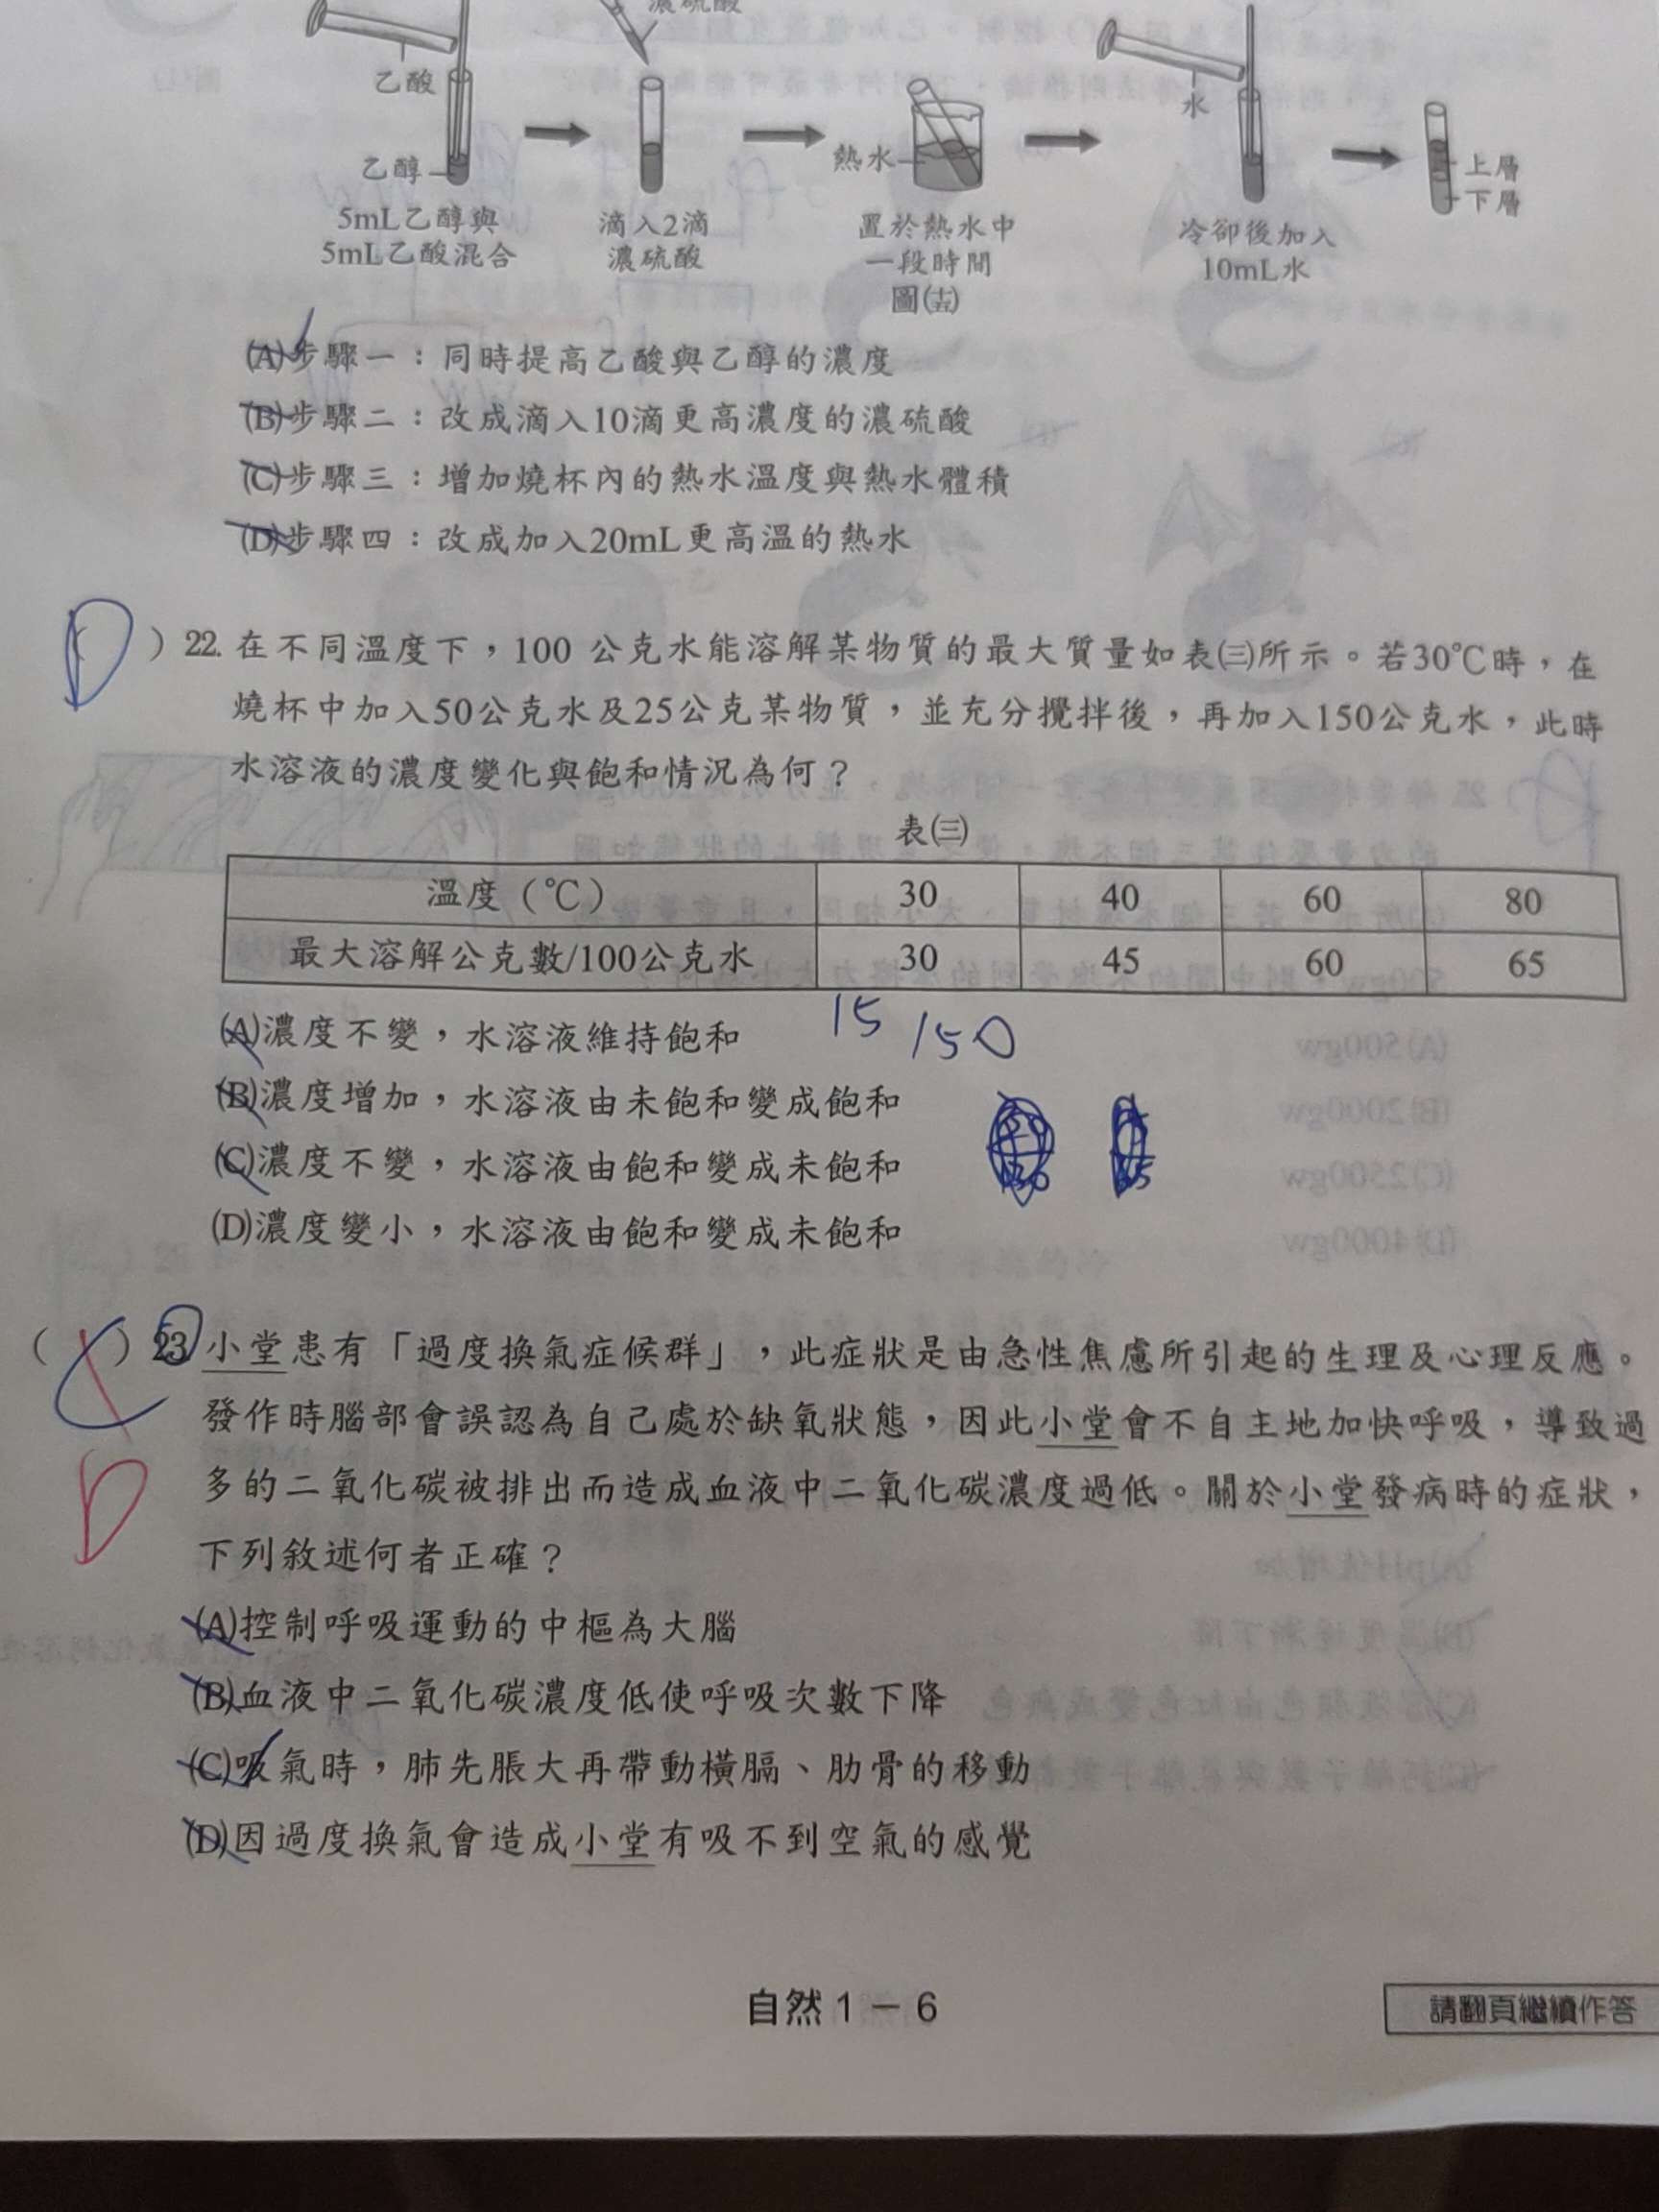 濃硫酸
乙酸
水
乙醇
熱水
上層
下層
5mL乙醇與
5mL乙酸混合
滴入2滴
濃硫酸
置於熱水中
一段時間
冷卻後加入
10mL水
圖(十五)
(A)步驟一：同時提高乙酸與乙醇的濃度
(B)步驟二：改成滴入10滴更高濃度的濃硫酸
(C)步驟三：增加燒杯內的熱水溫度與熱水體積
(D)步驟四：改成加入20mL更高溫的熱水
(D)22. 在不同溫度下，100 公克水能溶解某物質的最大質量如表(三)所示。若30℃時，在
燒杯中加入50公克水及25公克某物質，並充分攪拌後，再加入150公克水，此時
水溶液的濃度變化與飽和情況為何？
表(三)
溫度（℃） 30 40 60 80
最大溶解公克數/100公克水 30 45 60 65
15
150
(A)濃度不變，水溶液維持飽和
(B)濃度增加，水溶液由未飽和變成飽和
(C)濃度不變，水溶液由飽和變成未飽和
(D)濃度變小，水溶液由飽和變成未飽和
(C)23. 小堂患有「過度換氣症候群」，此症狀是由急性焦慮所引起的生理及心理反應。
發作時腦部會誤認為自己處於缺氧狀態，因此小堂會不自主地加快呼吸，導致過
D
多的二氧化碳被排出而造成血液中二氧化碳濃度過低。關於小堂發病時的症狀，
下列敘述何者正確？
(A)控制呼吸運動的中樞為大腦
(B)血液中二氧化碳濃度低使呼吸次數下降
(C)吸氣時，肺先脹大再帶動橫膈、肋骨的移動
(D)因過度換氣會造成小堂有吸不到空氣的感覺
自然 1 － 6
請翻頁繼續作答